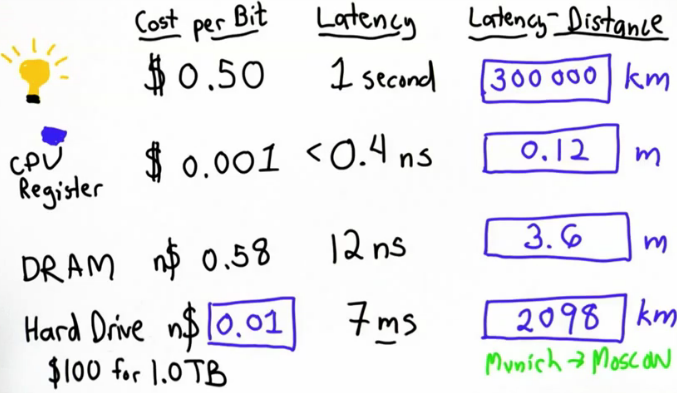 Cost per Bit Latency Latency-Distance
$ 0.50 1 second 300 000 km
CPU Register $ 0.001 <0.4 ns 0.12 m
DRAM n$ 0.58 12 ns 3.6 m
Hard Drive n$ 0.01 7 ms 2098 km
$100 for 1.0TB Munich → Moscow